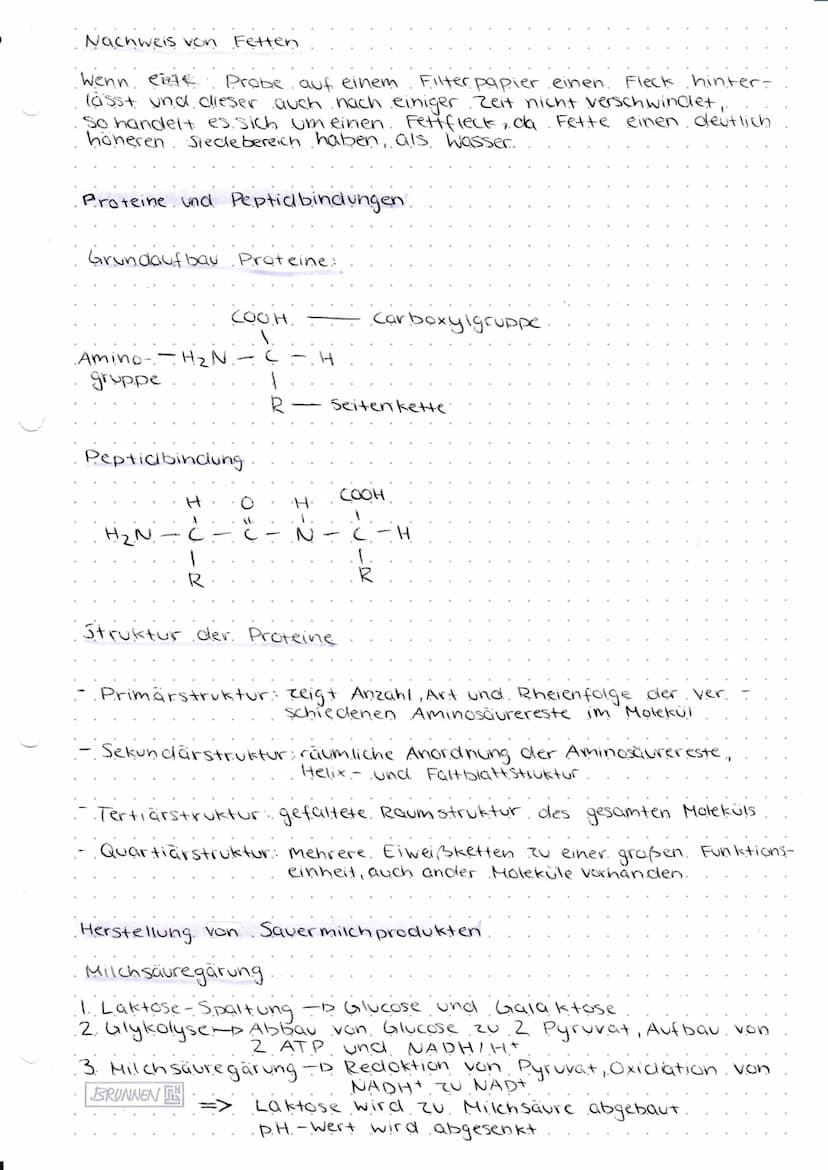 Nachweis von Fetten
Wenn eine Probe auf einem Filterpapier einen Fleck hinter-
lässt und dieser auch nach einiger Zeit nicht verschwindet,
so handelt es sich um einen Fettfleck, da Fette einen deutlich
höheren Siedebereich haben, als Wasser.
Proteine und Peptidbindungen
Grundaufbau Proteine:
COOH — Carboxylgruppe
Amino- — H₂N — C — H
gruppe
R — Seitenkette
Peptidbindung
H O H COOH
H₂N — C — C — N — C — H
R R
Struktur der Proteine
- Primärstruktur: zeigt Anzahl, Art und Rheienfolge der ver-
schiedenen Aminosäurereste im Molekül
- Sekundärstruktur: räumliche Anordnung der Aminosäurereste,
Helix- und Faltblattstruktur
- Tertiärstruktur: gefaltete Raumstruktur des gesamten Moleküls
- Quartiärstruktur: mehrere Eiweißketten zu einer großen Funktions-
einheit, auch ander Moleküle vorhanden.
Herstellung von Sauermilchprodukten
Milchsäuregärung
1. Laktose-Spaltung → Glucose und Galaktose
2. Glykolyse → Abbau von Glucose zu 2 Pyruvat, Aufbau von
2 ATP und NADH/H⁺
3. Milchsäuregärung → Redoktion von Pyruvat, Oxidation von
NADH⁺ zu NAD⁺
BRUNNEN
=> Laktose wird zu Milchsäure abgebaut
pH-Wert wird abgesenkt